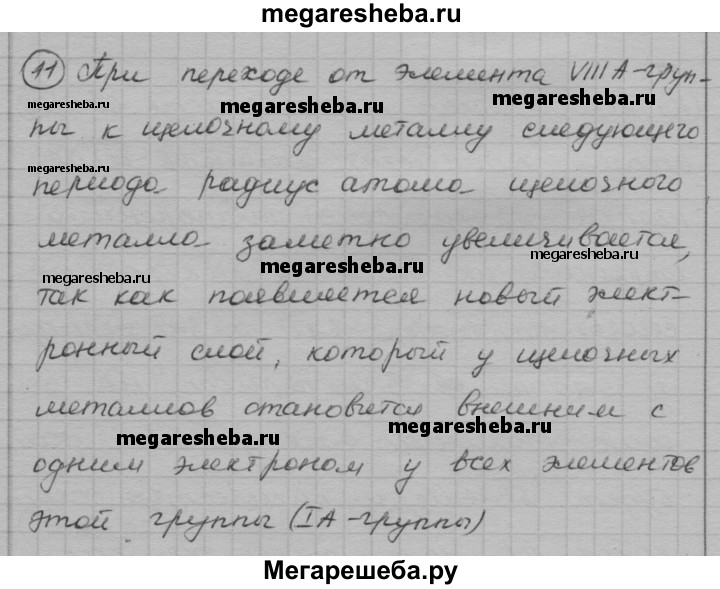 megaresheba.ru
11 При переходе от элемента VIII А-груп-
megaresheba.ru megaresheba.ru megaresheba.ru
пы к щелочному металлу следующего
megaresheba.ru
периода радиус атома щелочного
металла заметно увеличивается,
megaresheba.ru megaresheba.ru megaresheba.ru
так как появляется новый элект-
ронный слой, который у щелочных
металлов становится внешним с
megaresheba.ru megaresheba.ru
одним электроном у всех элементов
этой группы (IА-группы)
megaresheba.ru megaresheba.ru
Мегарешеба.ру